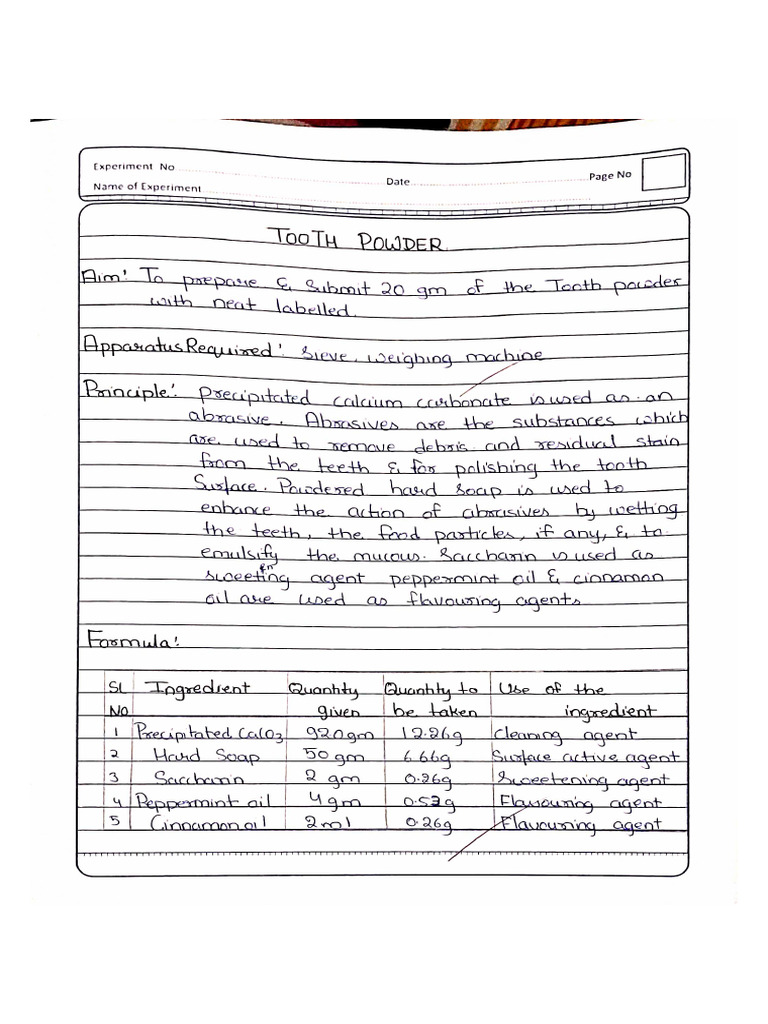 Experiment No
Date
Page No
Name of Experiment
TOOTH POWDER
Aim: To prepare & Submit 20 gm of the Tooth powder
with neat labelled.
Apparatus Required: Sieve, weighing machine
Principle: Precipitated calcium carbonate is used as an
abrasive. Abrasives are the substances which
are used to remove debris and residual stain
from the teeth & for polishing the tooth
Surface. Powdered hard soap is used to
enhance the action of abrasives by wetting
the teeth, the food particles, if any, & to
emulsify the mucous. Saccharin is used as
sweetening agent peppermint oil & cinnamon
oil are used as flavouring agents
Formula:
SL No | Ingredient | Quantity given | Quantity to be taken | Use of the ingredient
1 | Precipitated CaCO3 | 920gm | 12.26g | Cleaning agent
2 | Hard Soap | 50 gm | 6.66g | Surface active agent
3 | Saccharin | 2 gm | 0.26g | Sweetening agent
4 | Peppermint oil | 4 gm | 0.53g | Flavouring agent
5 | Cinnamon oil | 2 ml | 0.26g | Flavouring agent